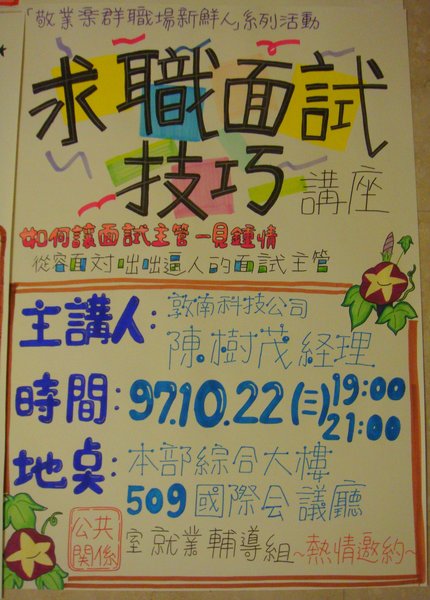 「敬業樂群職場新鮮人」系列活動
求職面試
技巧講座
如何讓面試主管一見鍾情
從容面對咄咄逼人的面試主管
主講人:敦南科技公司
陳樹茂經理
時間:97.10.22(三)19:00
21:00
地點:本部綜合大樓
509國際会議廳
公共關係室就業輔導組~熱情邀約~